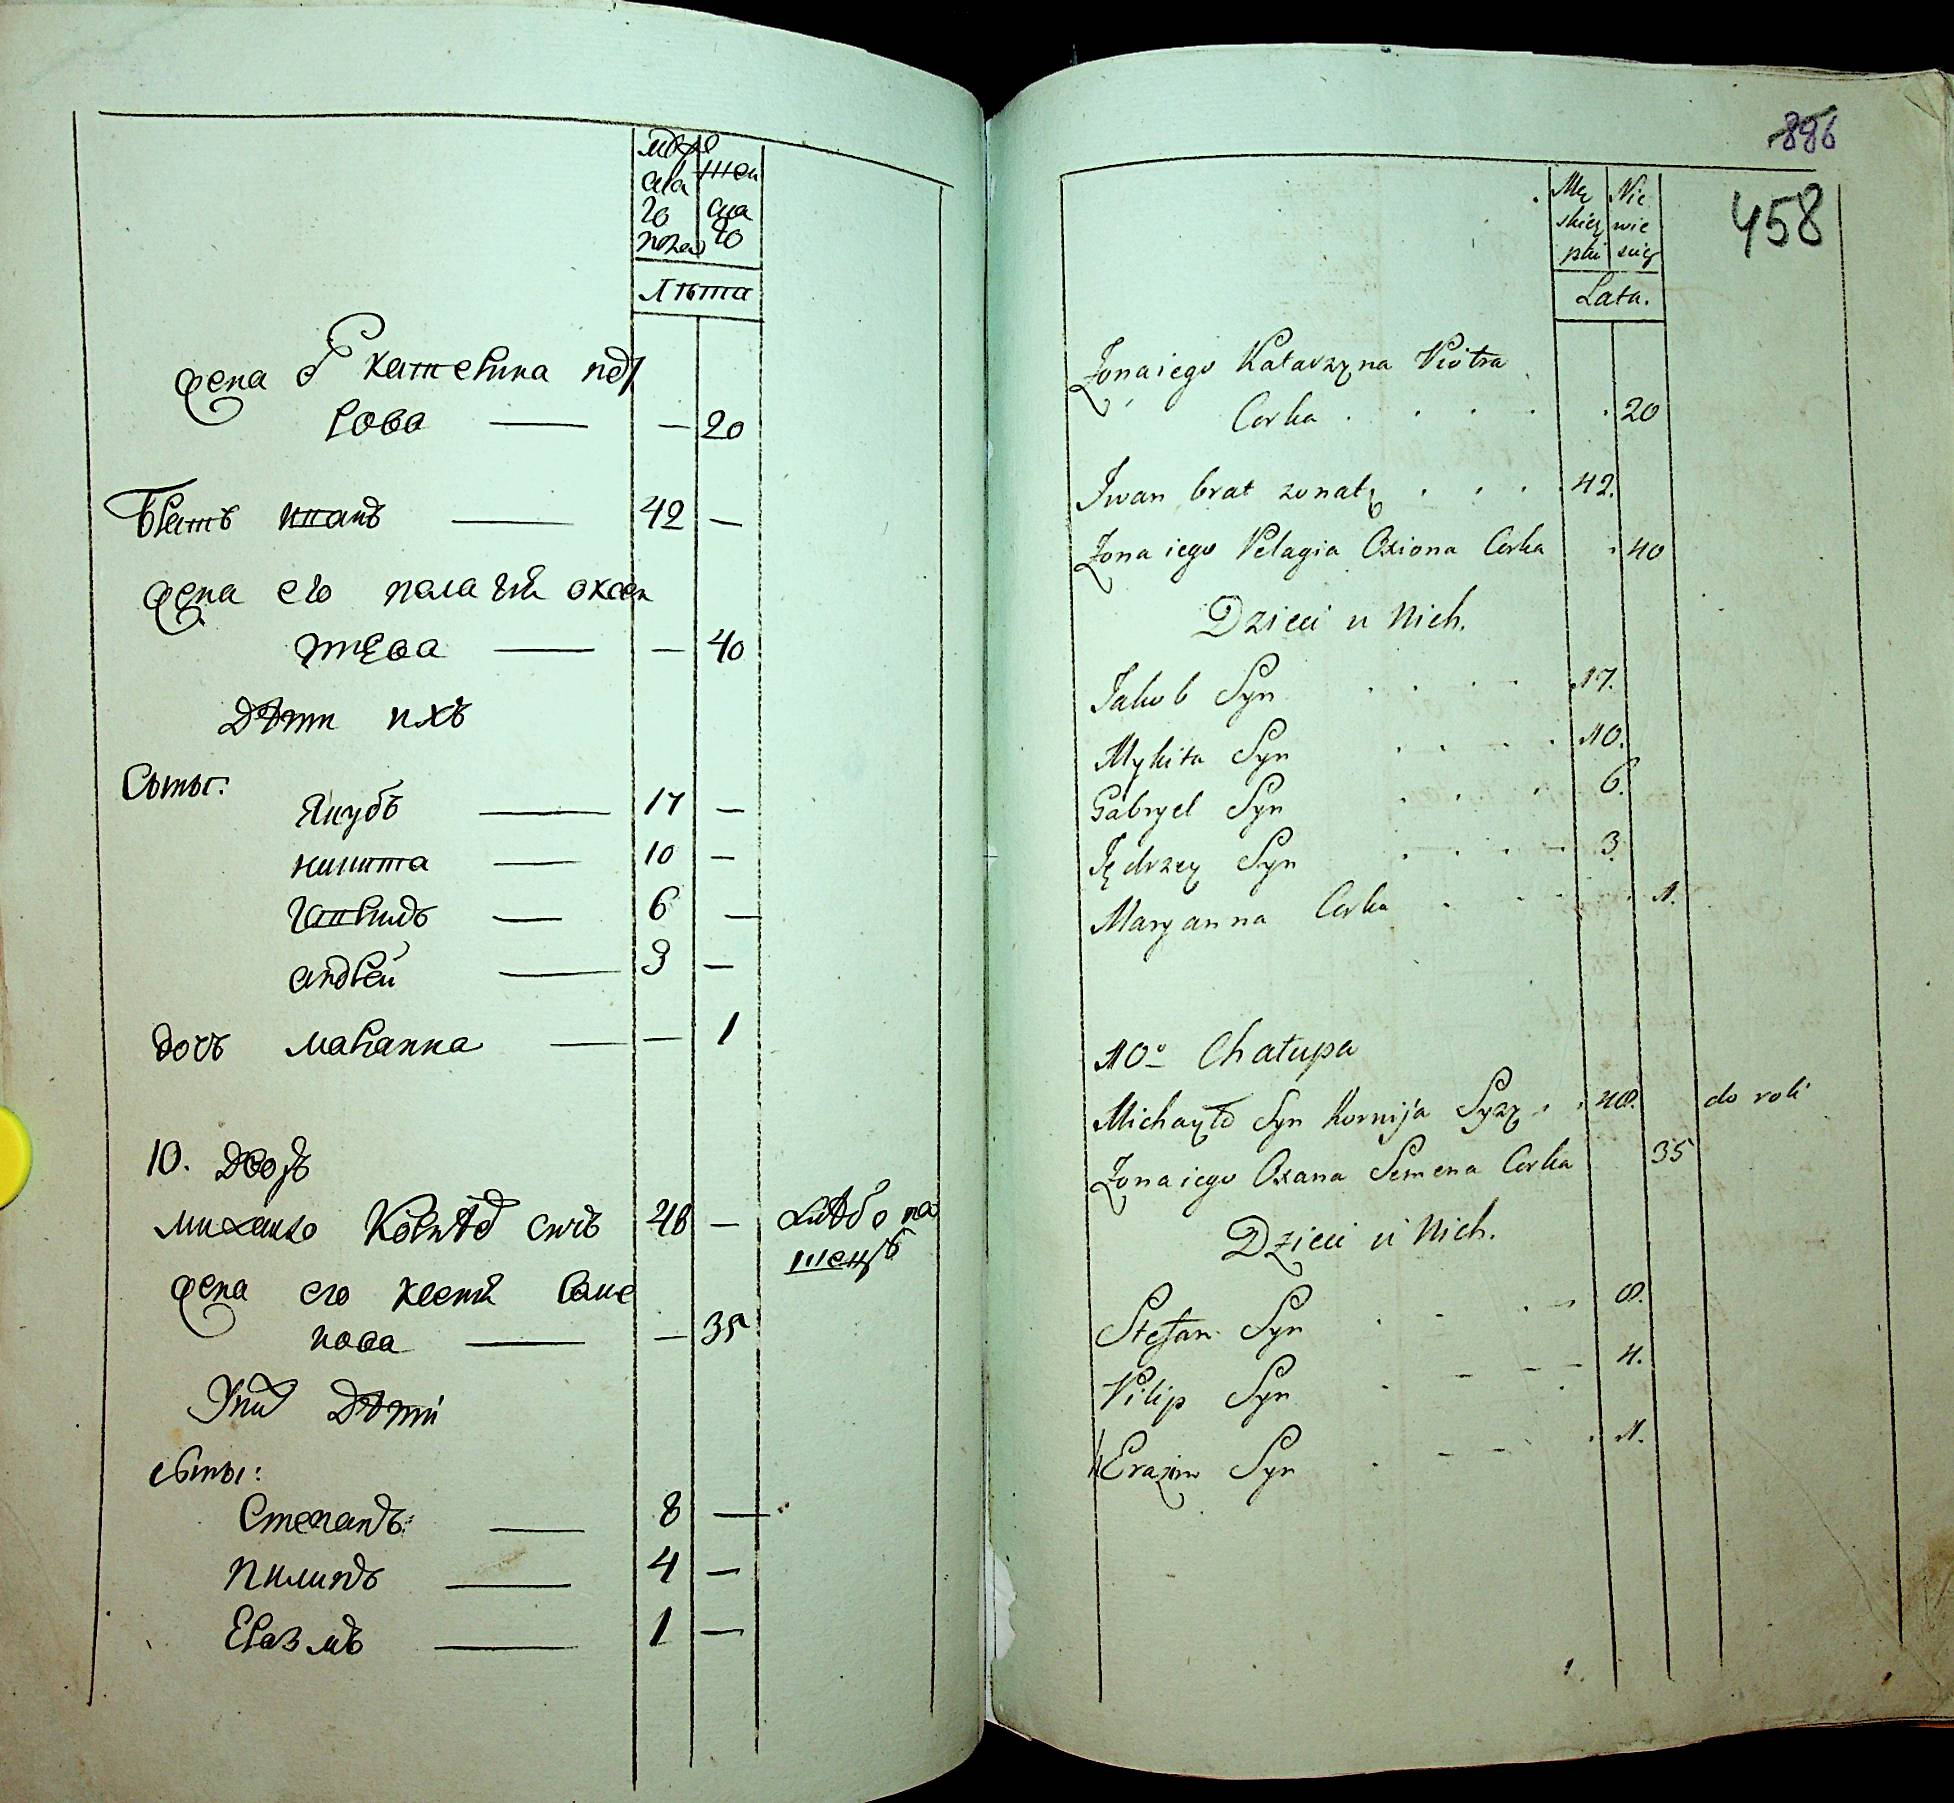 мѣже
ска
го
полѫ
жен
ска
го
Лѣта
жена Екатерина пет
рова — — 20
Братъ иванъ — 42 —
жена его палагия оксен
тѣева — — 40
дѣти ихъ
Сыны:
Якубъ — 17 —
никита — 10 —
Гаврилъ — 6 —
андрей — 3 —
дочь марянна — — 1
10. дворъ
михаило Корнѣевъ синъ 48 — хлѣбопа
шецъ
жена его ксения Семе
нова — — 35
У них дѣти
сыны:
Степанъ: — 8 —
пилипъ — 4 —
Еразмъ — 1 —
886
458
Mę
skiey
płci
Nie
wie
ściey
Lata.
Zona iego Katarzyna Piotra
Corka . . . . . 20
Iwan brat zonaty . . . . 42.
Zona iego Pelagia Oxiona Corka . 40
Dzieci u Nich.
Jakob Syn . . . . 17.
Mykita Syn . . . . 10.
Gabryel Syn . . . 6.
Jędrzey Syn . . . . 3.
Maryanna Corka . . . . 1.
10o Chałupa
Michayło Syn Kornija . . 48. do roli
Zona iego Oxana Semena Corka 35
Dzieci u Nich.
Stefan Syn . . . . 8.
Pilip Syn . . . . 4.
Erazm Syn . . . . 1.